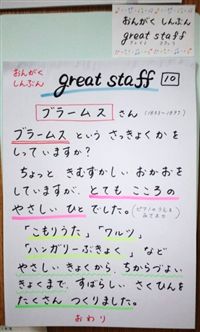 おんがく しんぶん
great staff
おんがく
しんぶん
great staff 10
ブラームス さん (1833-1897)
ブラームス という さっきょくかを
しっていますか?
ちょっと きむずかしい おかおを
していますが、とても こころの
やさしい ひと でした。
「こもりうた」「ワルツ」
「ハンガリーぶきょく」 など
やさしい きょくから、ちからづよい
きょくまで、すばらしい さくひんを
たくさん つくりました。
おわり